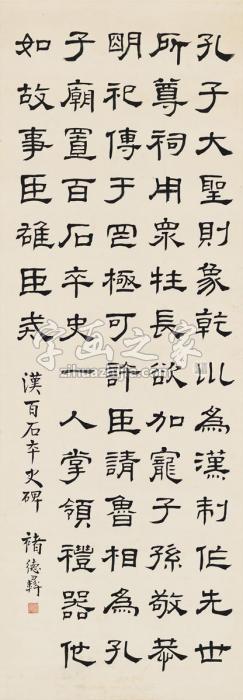 孔子大聖則象乾川為漢制作先世
所尊祠用眾牲長欲加寵子孫敬恭
明祀傳于罔極可許臣請魯相為孔
子廟置百石卒史一人掌領禮器他
如故事臣雄臣戒
漢百石卒史碑 褚德彝
字画之家
zihuazhijia.com